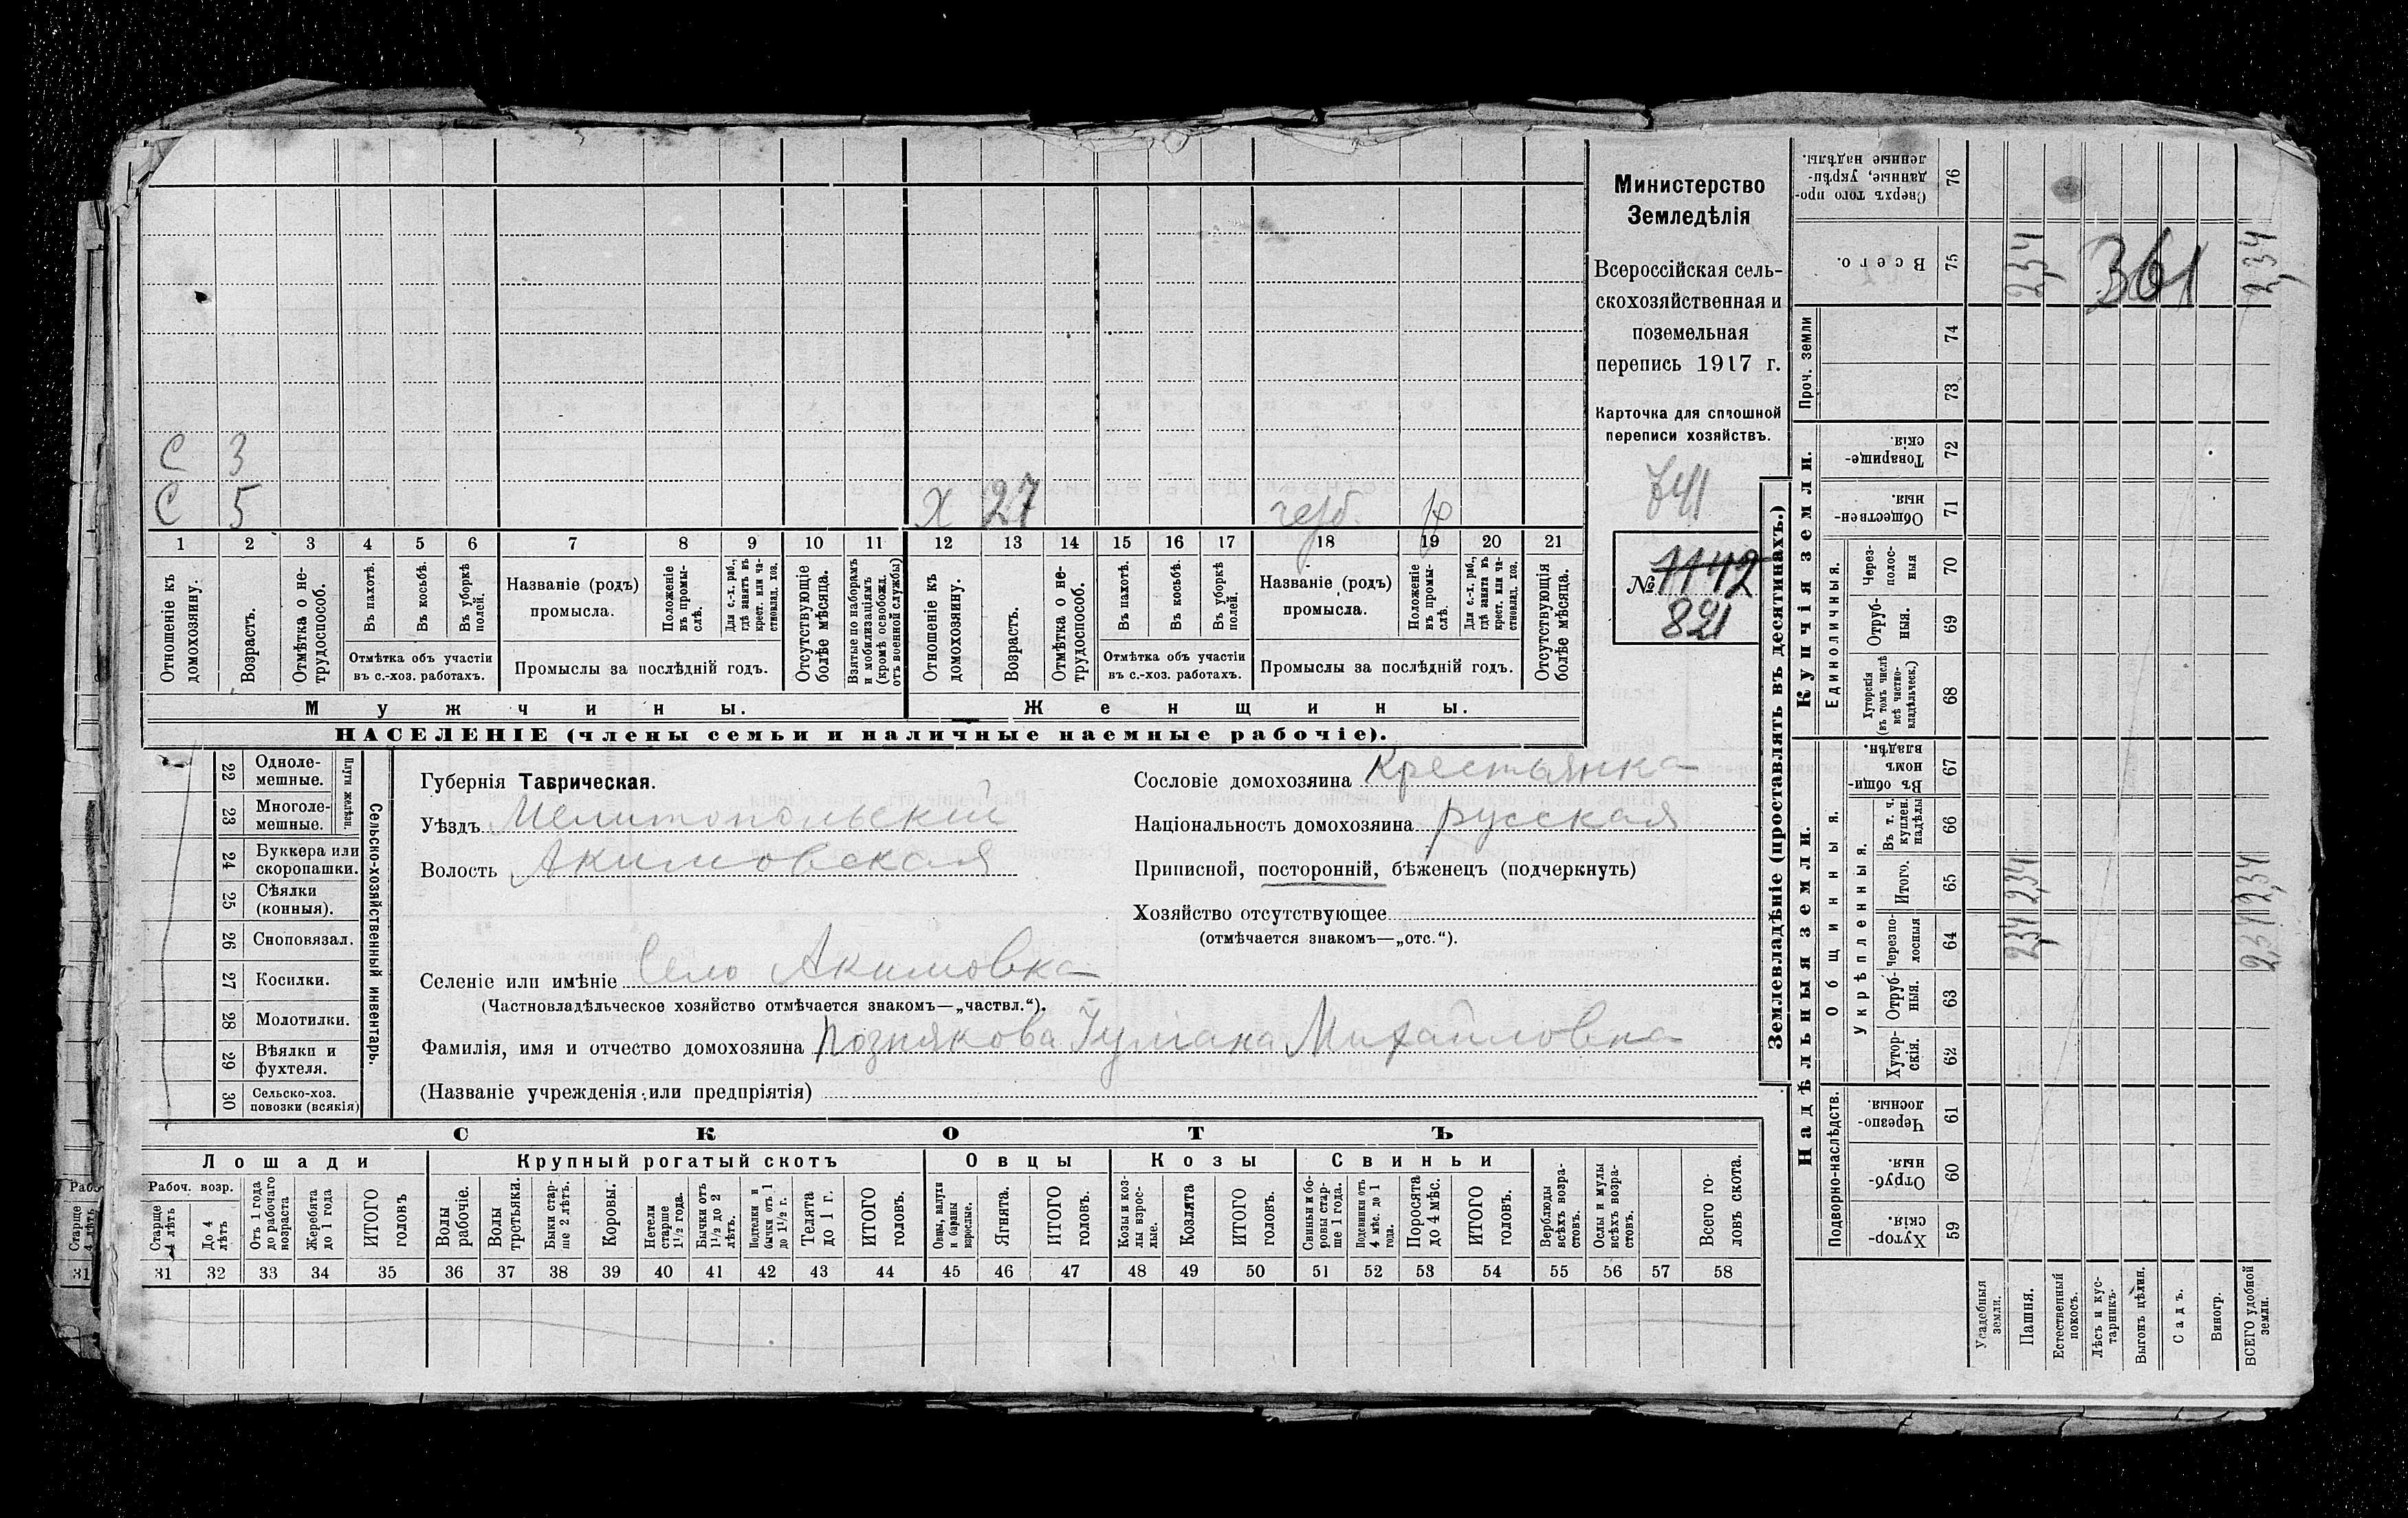 С 3
С 5
Х 27
1 2 3 4 5 6 7 8 9 10 11 12 13 14 15 16 17 18 19 20 21
Отношеніе къ домохозяину.
Возрастъ.
Отмѣтка о нетрудоспособ.
Въ пахотѣ.
Въ косьбѣ.
Въ уборкѣ полей.
Отмѣтка объ участіи
въ с.-хоз. работахъ.
Названіе (родъ)
промысла.
Положеніе въ промыслѣ.
Для с.-х. раб., гдѣ занятъ въ крест. или частновлад. хоз.
Промыслы за послѣдній годъ.
Отсутствующіе болѣе мѣсяца.
Взятые по наборамъ и мобилизаціямъ (кромѣ освобожд. отъ военной службы)
Отношеніе къ домохозяину.
Возрастъ.
Отмѣтка о нетрудоспособ.
Въ пахотѣ.
Въ косьбѣ.
Въ уборкѣ полей.
Отмѣтка объ участіи
въ с.-хоз. работахъ.
Названіе (родъ)
промысла.
Положеніе въ промыслѣ.
Для с.-х. раб., гдѣ занята въ крест. или частновлад. хоз.
Промыслы за послѣдній годъ.
Отсутствующія болѣе мѣсяца.
Мужчины.
Женщины.
НАСЕЛЕНІЕ (члены семьи и наличные наемные рабочіе).
Министерство
Земледѣлія
Всероссійская сель-
скохозяйственная и
поземельная
перепись 1917 г.
Карточка для сплошной
переписи хозяйствъ.
741
№ 1142
821
22 Одноле-
мешные.
23 Многоле-
мешные.
Плуги желѣзн.
24 Буккера или
скоропашки.
25 Сѣялки
(конныя).
26 Сноповязал.
27 Косилки.
28 Молотилки.
29 Вѣялки и
фухтеля.
30 Сельско-хоз.
повозки (всякія)
Сельско-хозяйственный инвентарь.
Губернія Таврическая.
Уѣздъ Мелитопольскій
Волость Акимовская
Сословіе домохозяина Крестьянка
Національность домохозяина русская
Приписной, посторонній, бѣженецъ (подчеркнуть)
Хозяйство отсутствующее
(отмѣчается знакомъ—„отс.“).
Селеніе или имѣніе Село Акимовка
(Частновладѣльческое хозяйство отмѣчается знакомъ—„частвл.“).
Фамилія, имя и отчество домохозяина Познякова Михайловна
(Названіе учрежденія или предпріятія)
СКОТЪ
Лошади
Крупный рогатый скотъ
Овцы
Козы
Свиньи
Рабоч. возр.
Старше 4 лѣтъ
До 4 лѣтъ
Отъ 1 года до рабочаго возраста
Жеребята до 1 года
ИТОГО головъ
Волы рабочіе.
Волы третьяки.
Быки старше 2 лѣтъ.
Коровы.
Нетели старше 1½ года.
Бычки отъ 1½ до 2 лѣтъ.
Подтелки и бычки отъ 1 до 1½ г.
Телята до 1 г.
ИТОГО головъ.
Овцы, валухи и бараны взрослые.
Ягнята.
ИТОГО головъ.
Козы и козлы взрослые.
Козлята
ИТОГО головъ.
Свиньи и боровы старше 1 года.
Подсвинки отъ 4 мѣс. до 1 года.
Поросята до 4 мѣс.
ИТОГО головъ.
Верблюды всѣхъ возрастовъ.
Ослы и мулы всѣхъ возрастовъ.
Всего головъ скота.
31 32 33 34 35 36 37 38 39 40 41 42 43 44 45 46 47 48 49 50 51 52 53 54 55 56 57 58
Старше 4 лѣтъ
31
Землевладѣніе (проставлять въ десятинахъ.)
Купчія земли.
Надѣльныя земли.
Сверхъ того проданные, укрѣпленные надѣлы. 76
Всего. 75 2,34 361 2,34
Проч. земли
74
73
Товарищескія. 72
Общественныя. 71
Единоличныя.
Черезполосныя 70
Отрубныя. 69
Хуторскія (въ томъ числѣ всѣ частновладѣльческ.) 68
Общинныя.
Въ общинномъ владѣн. 67
Укрѣпленныя.
Въ т. ч. куплен. надѣлы 66
Итого. 65 2,34 2,34
Черезполосныя 64 2,34 2,34
Отрубныя. 63
Хуторскія. 62
Подворно-наслѣдств.
Черезполосныя. 61
Отрубныя. 60
Хуторскія. 59
Усадебныя земли.
Пашня.
Естественный покосъ.
Лѣсъ и кустарникъ.
Выгонъ цѣлин.
Садъ.
Виногр.
ВСЕГО удобной земли.